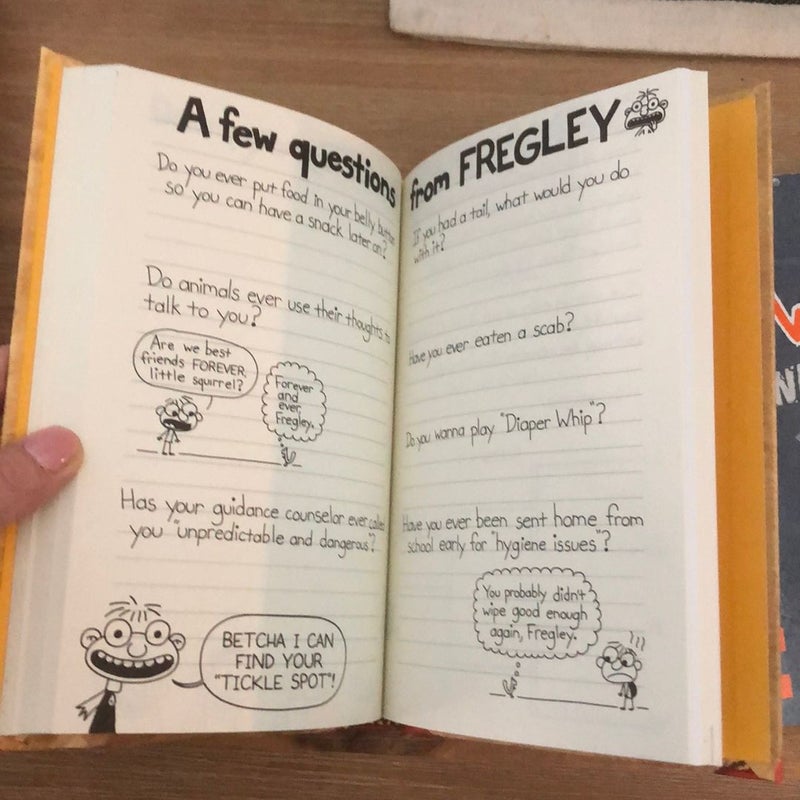 A few questions
Do you ever put food in your belly button
so you can have a snack later on?
Do animals ever use their thoughts to
talk to you?
Are we best
friends FOREVER,
little squirrel?
Forever
and
ever,
Fregley.
Has your guidance counselor ever called
you "unpredictable and dangerous"?
BETCHA I CAN
FIND YOUR
"TICKLE SPOT"!
from FREGLEY
If you had a tail, what would you do
with it?
Have you ever eaten a scab?
Do you wanna play "Diaper Whip"?
Have you ever been sent home from
school early for "hygiene issues"?
You probably didn't
wipe good enough
again, Fregley.